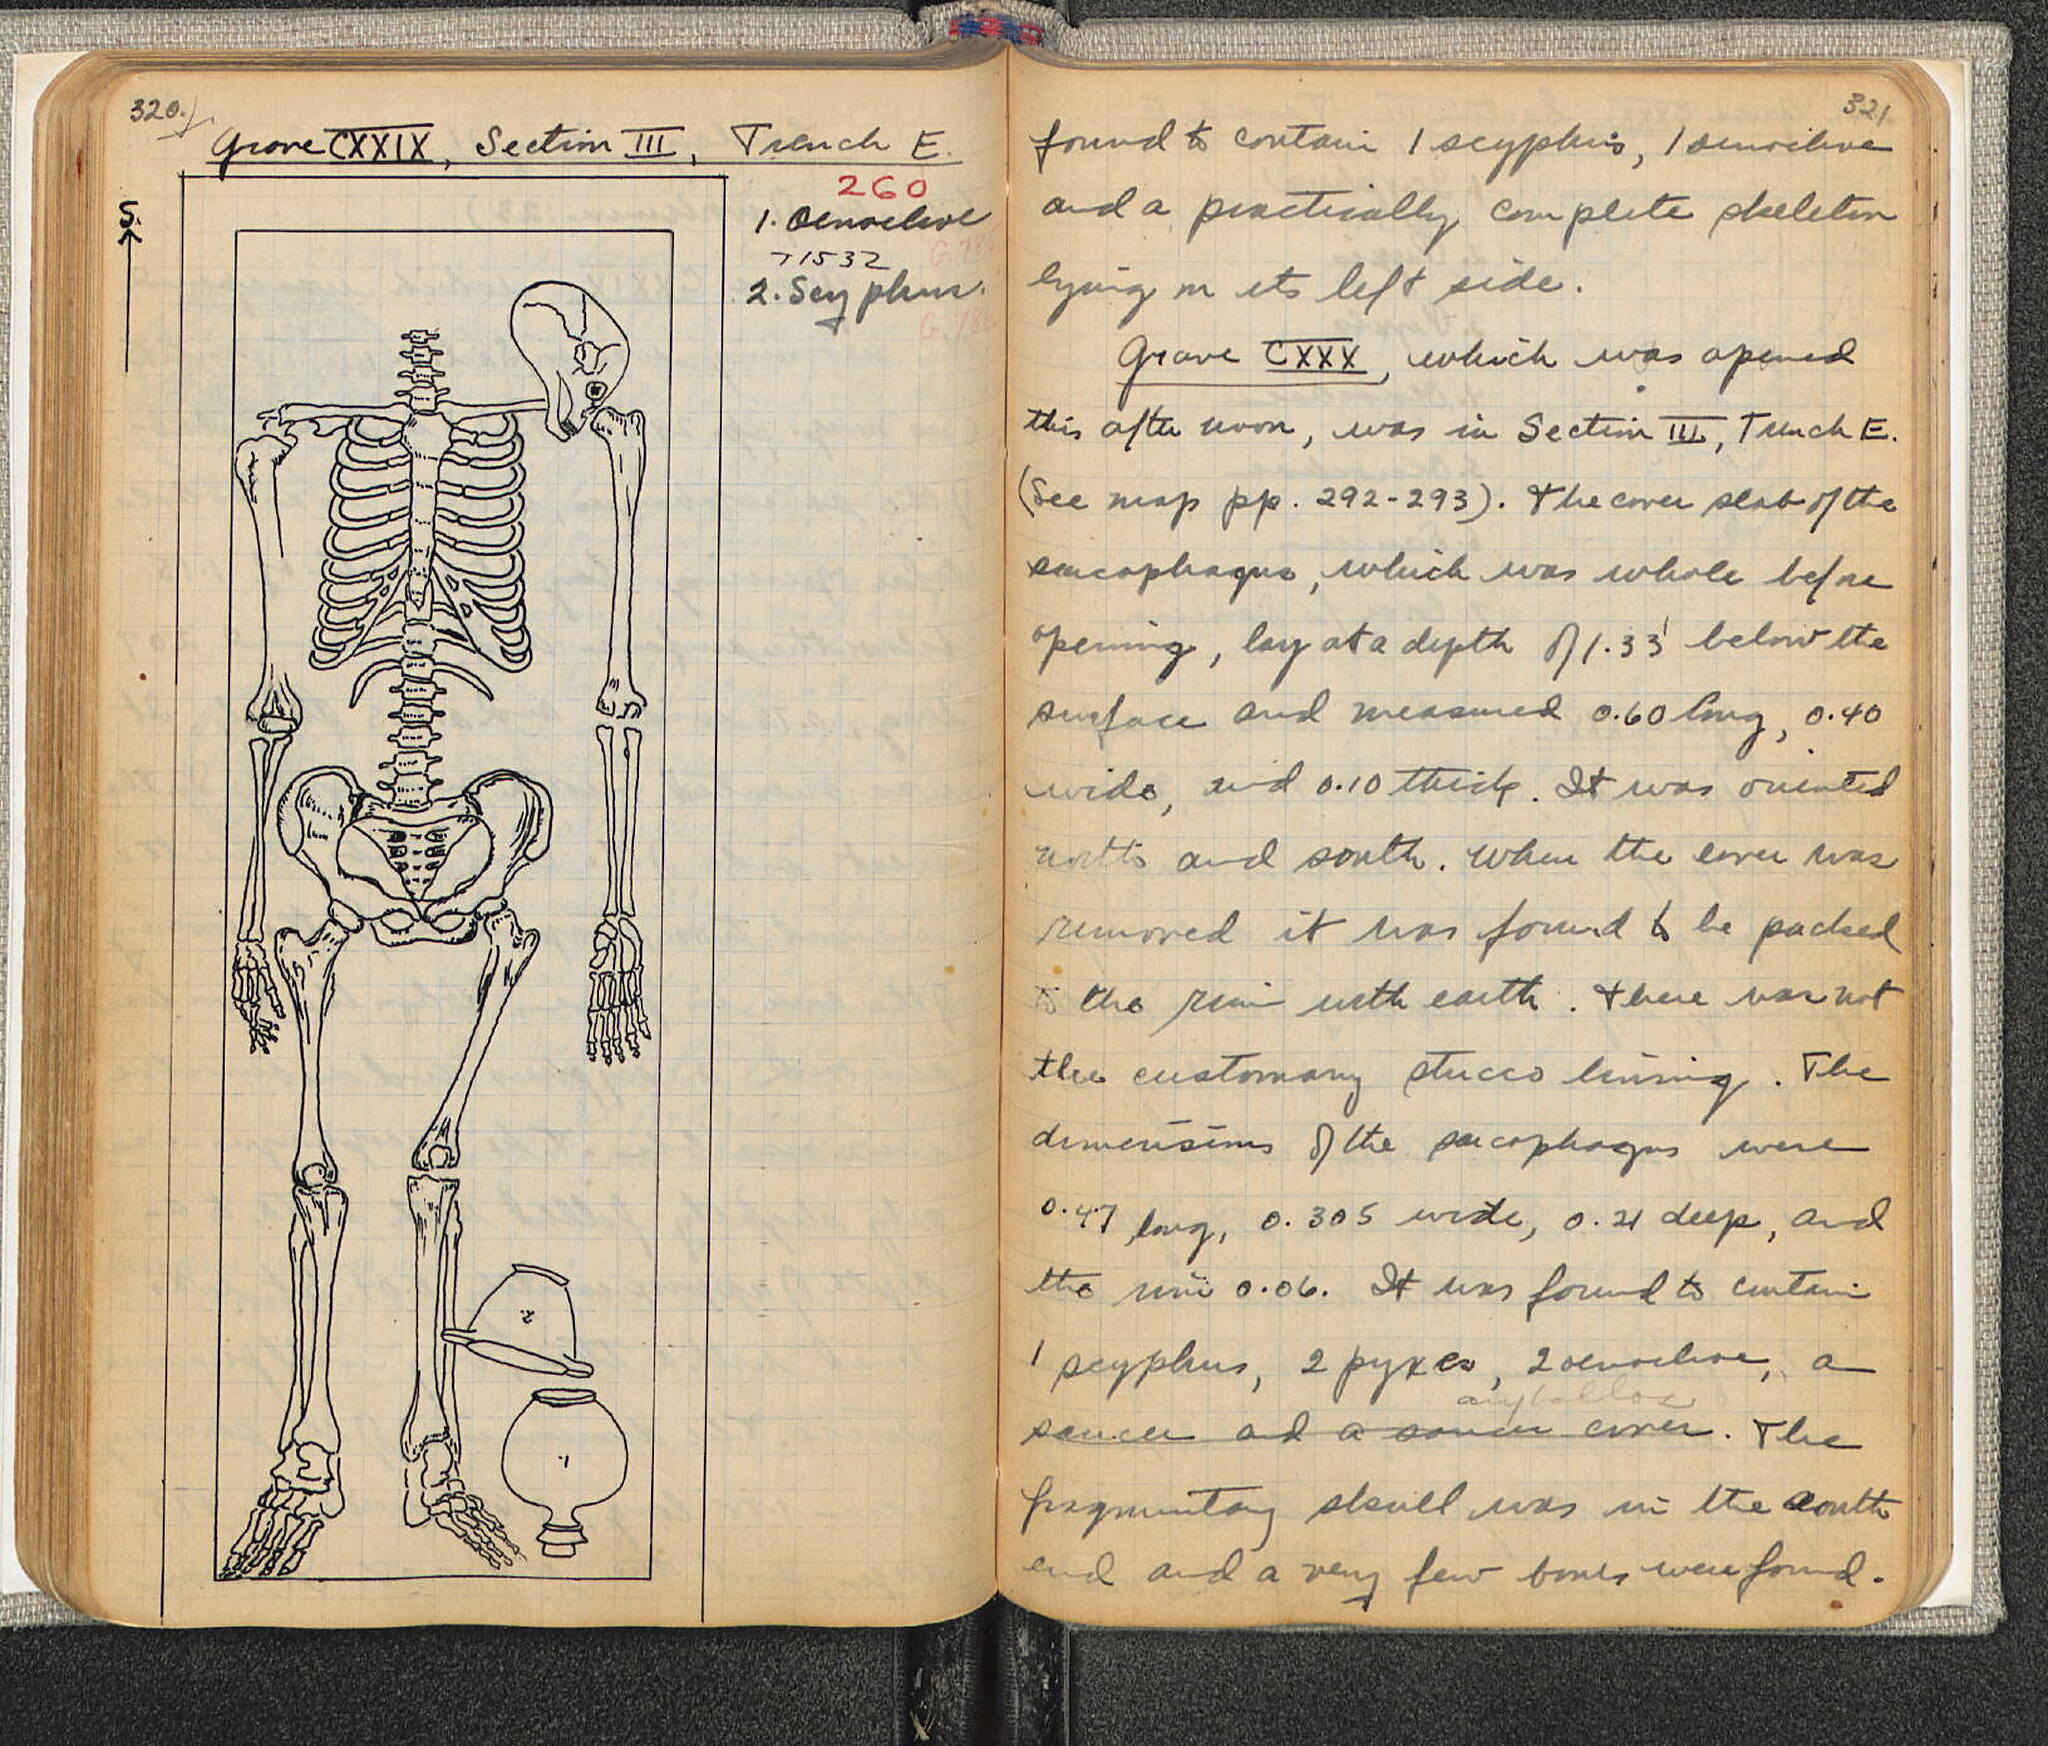 320.
Grave CXXIX, Section III, Trench E.
260
S.
1. Oenochoe
T1532
G.78
2. Scyphus.
G.78
2
1
321
found to contain 1 scyphus, 1 oenochoe
and a practically complete skeleton
lying on its left side.
Grave CXXX, which was opened
this afternoon, was in Section III, Trench E.
(See map pp. 292-293). The cover slab of the
sarcophagus, which was whole before
opening, lay at a depth of 1.33 below the
surface and measured 0.60 long, 0.40
wide, and 0.10 thick. It was oriented
north and south. When the cover was
removed it was found to be packed
to the rim with earth. There was not
the customary stucco lining. The
dimensions of the sarcophagus were
0.47 long, 0.305 wide, 0.21 deep, and
the rim 0.06. It was found to contain
1 scyphus, 2 pyxes, 2 oenochoe, a
aryballos
saucer and a saucer cover. The
fragmentary skull was in the south
end and a very few bones were found.